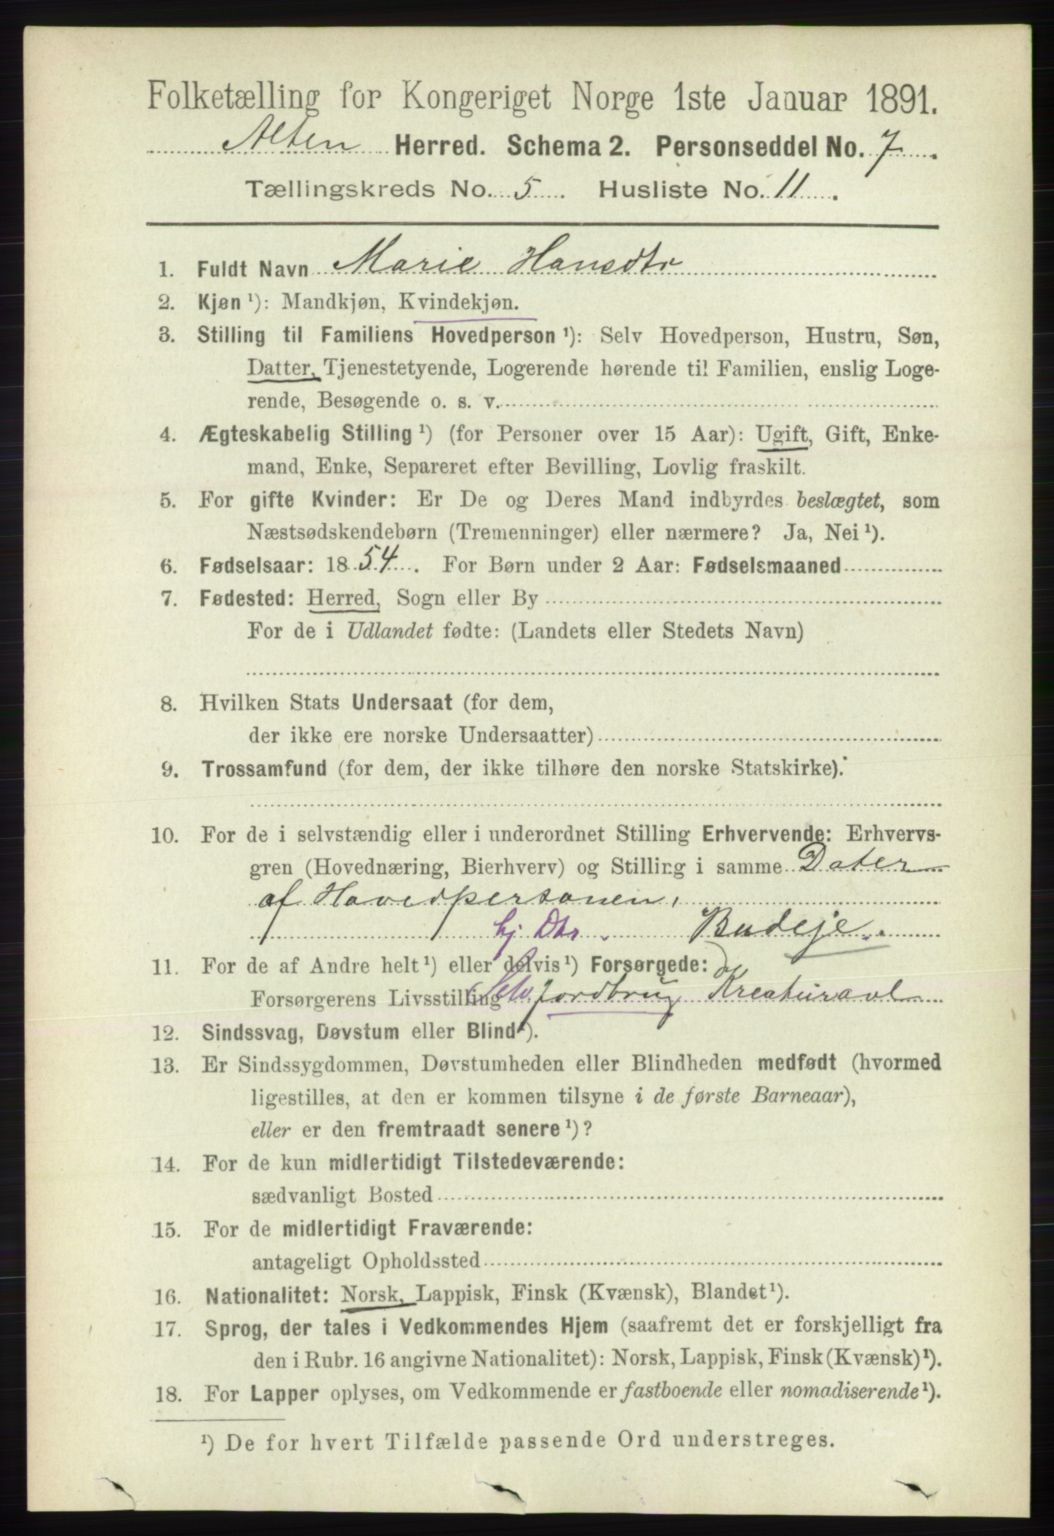 Folketælling for Kongeriget Norge 1ste Januar 1891.
Alten Herred. Schema 2. Personseddel No. 7.
Tællingskreds No. 5. Husliste No. 11.
1. Fuldt Navn Marie Hansdtr
2. Kjøn ¹): Mandkjøn, Kvindekjøn.
3. Stilling til Familiens Hovedperson ¹): Selv Hovedperson, Hustru, Søn,
Datter, Tjenestetyende, Logerende hørende til Familien, enslig Loge-
rende, Besøgende o. s. v.
4. Ægteskabelig Stilling ¹) (for Personer over 15 Aar): Ugift, Gift, Enke-
mand, Enke, Separeret efter Bevilling, Lovlig fraskilt.
5. For gifte Kvinder: Er De og Deres Mand indbyrdes beslægtet, som
Næstsødskendebørn (Tremenninger) eller nærmere? Ja, Nei ¹).
6. Fødselsaar: 1854. For Børn under 2 Aar: Fødselsmaaned
7. Fødested: Herred, Sogn eller By
For de i Udlandet fødte: (Landets eller Stedets Navn)
8. Hvilken Stats Undersaat (for dem,
der ikke ere norske Undersaatter)
9. Trossamfund (for dem, der ikke tilhøre den norske Statskirke).
10. For de i selvstændig eller i underordnet Stilling Erhvervende: Erhvervs-
gren (Hovednæring, Bierhverv) og Stilling i samme Dater
af Hovedpersonen,
hj. Dtr. Budeje.
11. For de af Andre helt ¹) eller delvis ¹) Forsørgede:
Forsørgerens Livsstilling Selv. jordbrug Kreaturavl
12. Sindssvag, Døvstum eller Blind ¹).
13. Er Sindssygdommen, Døvstumheden eller Blindheden medfødt (hvormed
ligestilles, at den er kommen tilsyne i de første Barneaar),
eller er den fremtraadt senere ¹)?
14. For de kun midlertidigt Tilstedeværende:
sædvanligt Bosted
15. For de midlertidigt Fraværende:
antageligt Opholdssted
16. Nationalitet: Norsk, Lappisk, Finsk (Kvænsk), Blandet ¹).
17. Sprog, der tales i Vedkommendes Hjem (saafremt det er forskjelligt fra
den i Rubr. 16 angivne Nationalitet): Norsk, Lappisk, Finsk (Kvænsk) ¹).
18. For Lapper oplyses, om Vedkommende er fastboende eller nomadiserende ¹).
¹) De for hvert Tilfælde passende Ord understreges.